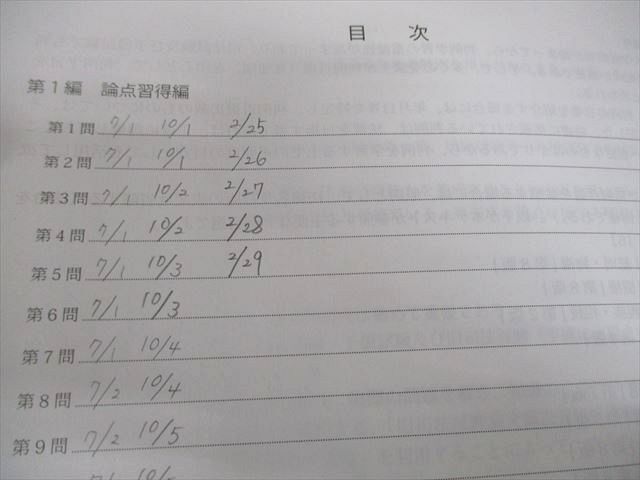 目 次
第1編 論点習得編
第1問 7/1 10/1 2/25
第2問 7/1 10/1 2/26
第3問 7/1 10/2 2/27
第4問 7/1 10/2 2/28
第5問 7/1 10/3 2/29
第6問 7/1 10/3
第7問 7/1 10/4
第8問 7/2 10/4
第9問 7/2 10/5